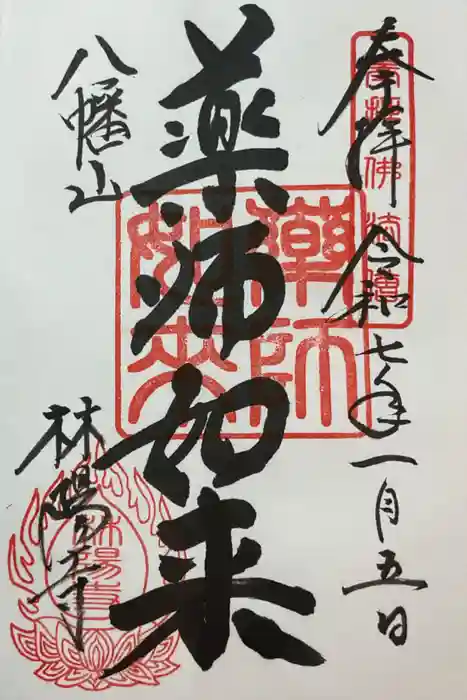 奉拝 令和七年一月五日
薬師如来
八幡山
林陽寺
藥師如来
林陽寺